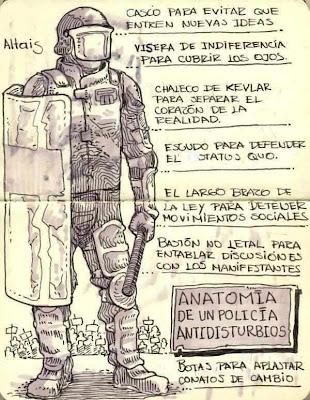 CASCO PARA EVITAR QUE
ENTREN NUEVAS IDEAS
Altais
VISERA DE INDIFERENCIA
PARA CUBRIR LOS OJOS.
CHALECO DE KEVLAR
PARA SEPARAR EL
CORAZÓN DE LA
REALIDAD.
ESCUDO PARA DEFENDER
EL STATUS QUO.
EL LARGO BRAZO DE
LA LEY PARA DETENER
MOVIMIENTOS SOCIALES
BASTÓN NO LETAL PARA
ENTABLAR DISCUSIONES
CON LOS MANIFESTANTES
ANATOMÍA
DE UN POLICÍA
ANTIDISTURBIOS
BOTAS PARA APLASTAR
CONATOS DE CAMBIO